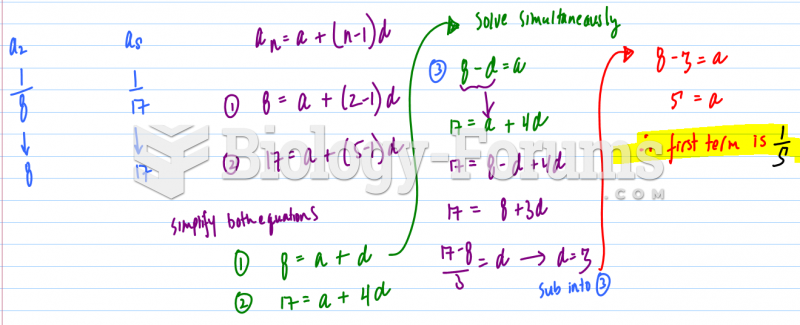 a2
a5
1/8
1/17
↓
↓
8
17
an = a + (n-1)d
① 8 = a + (2-1)d
② 17 = a + (5-1)d
simplify both equations
① 8 = a + d
② 17 = a + 4d
solve simultaneously
③ 8 - d = a
17 = a + 4d
17 = 8 - d + 4d
17 = 8 + 3d
17-8/3 = d → d = 3
sub into ③
8 - 3 = a
5 = a
∴ first term is 1/5
Biology-Forums
.COM